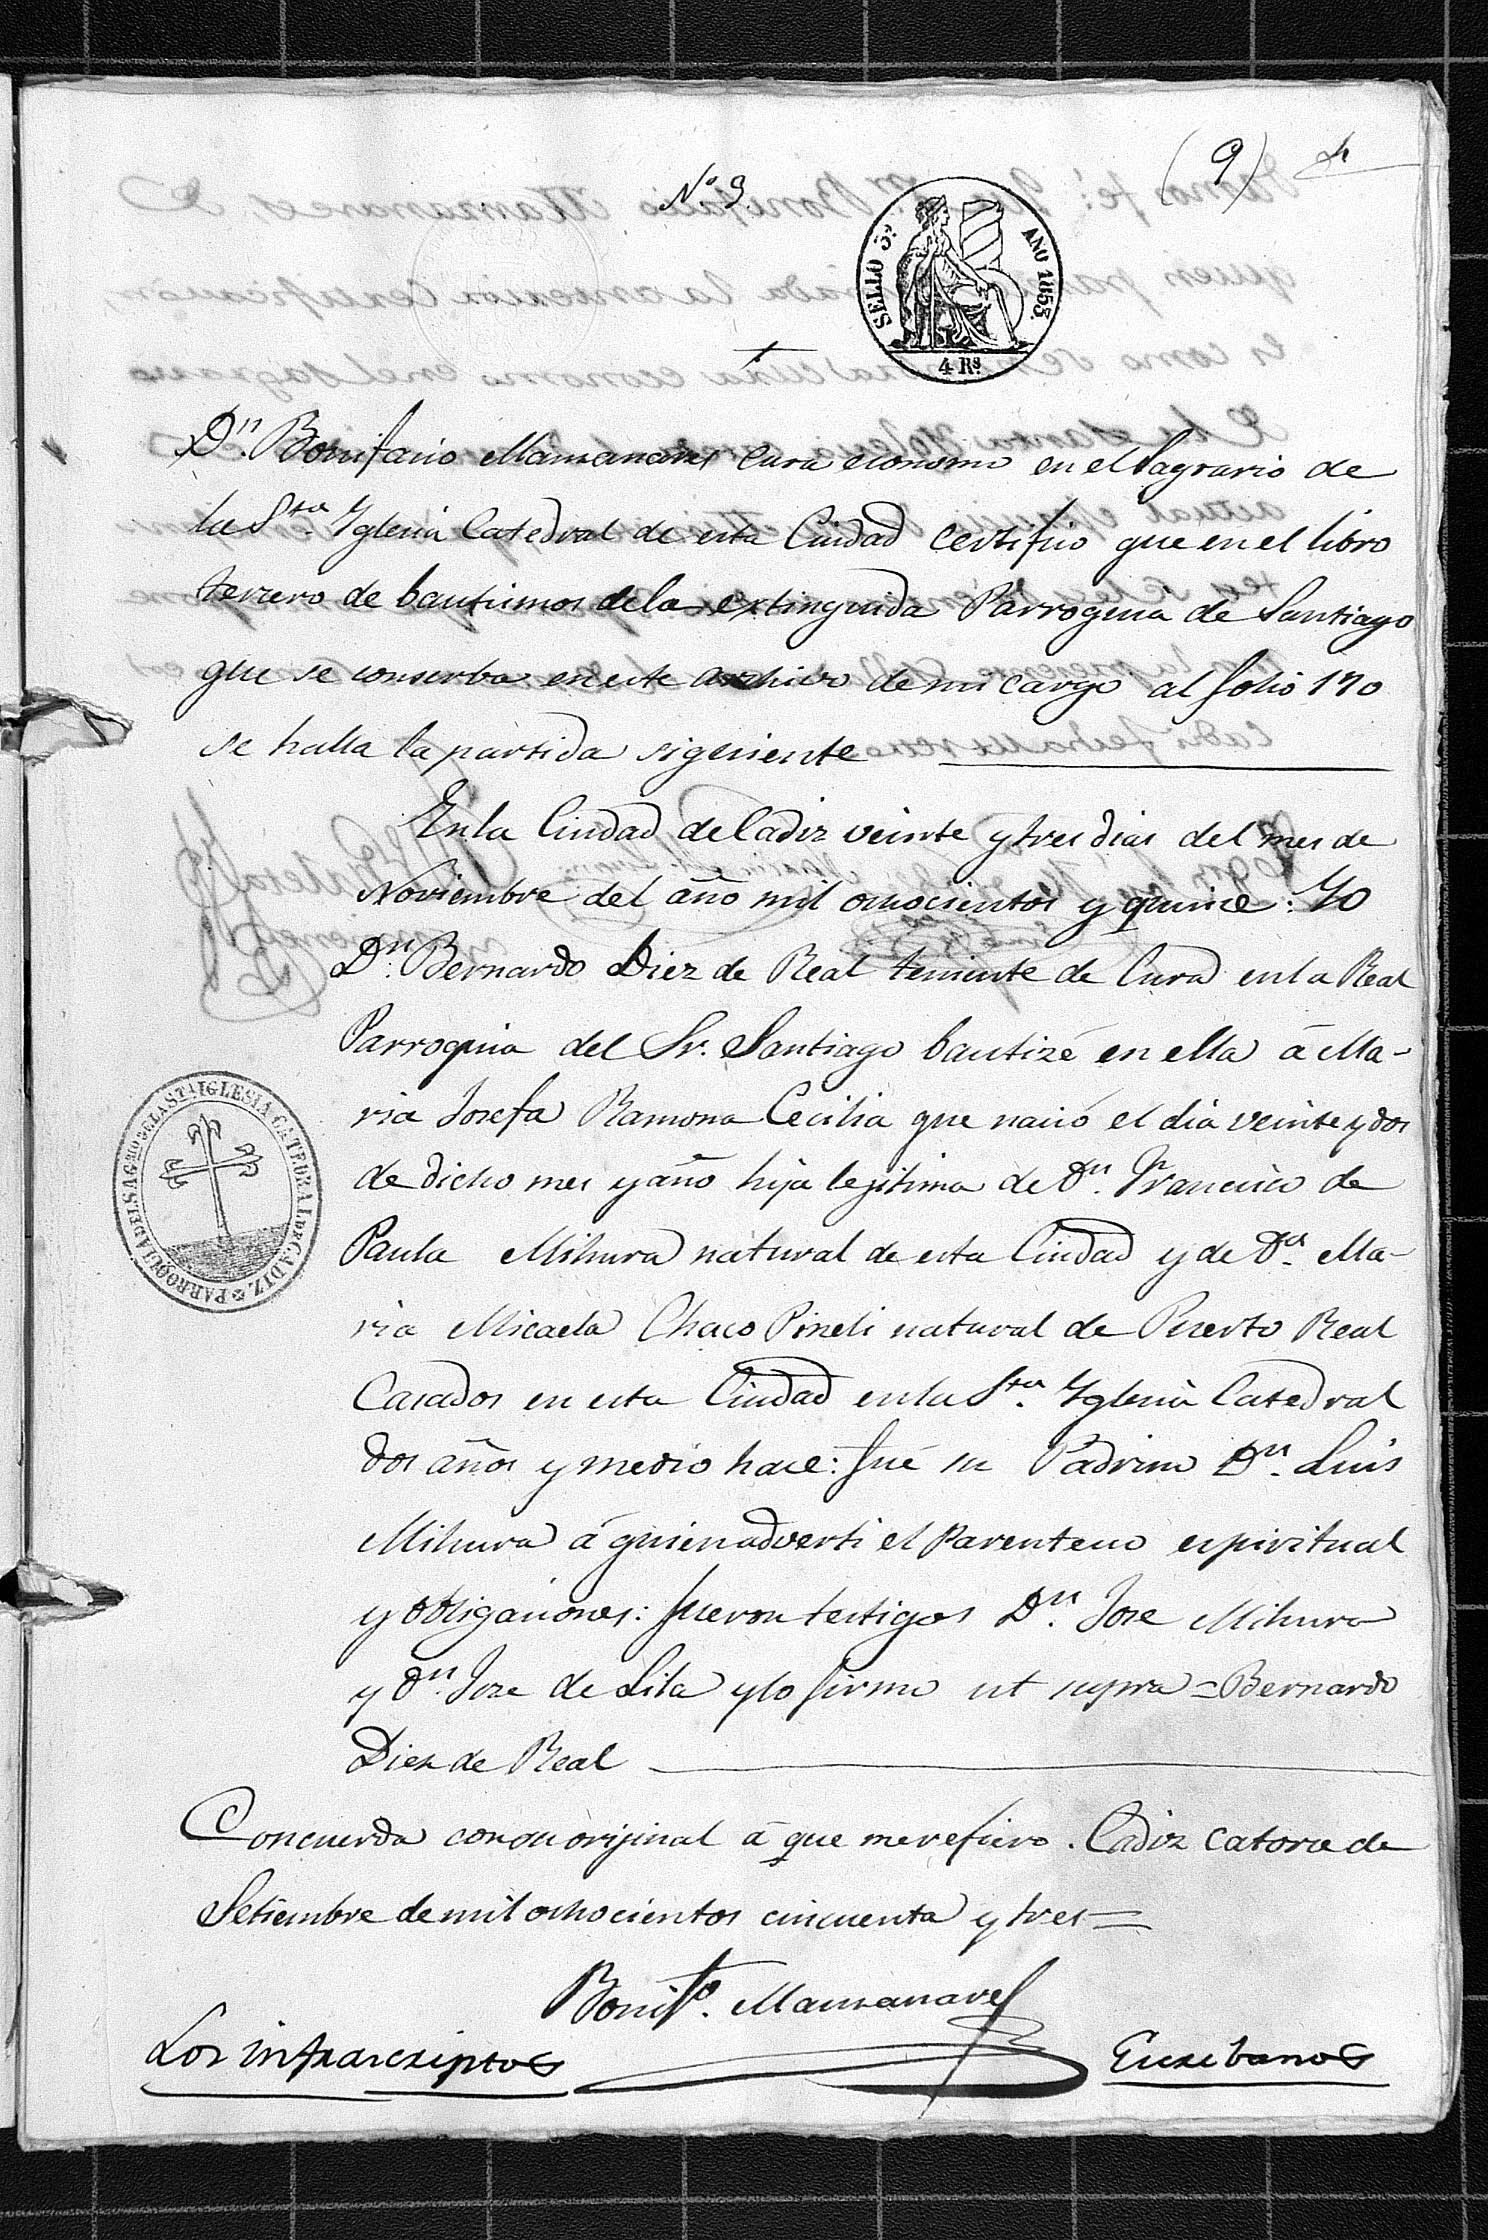 (9)
Nº 9.
SELLO 3º AÑO 1853.
4 Rs
Dn. Bonifacio Manzanares cura economo en el Sagrario de
la Sta. Yglesia Catedral de esta Ciudad certifico que en el libro
tercero de bautismos de la extinguida Parroquia de Santiago
que se conserba en este archivo de mi cargo al folio 170
se halla la partida siguiente
En la Ciudad de Cadiz veinte y tres dias del mes de
Noviembre del año mil ochocientos y quince: Yo
Dn. Bernardo Diez de Real teniente de Cura en la Real
Parroquia del Sr. Santiago bautizé en ella á Ma-
ria Josefa Ramona Cecilia que nació el dia veinte y dos
de dicho mes y año hija legitima de Dn. Francisco de
Paula Mihura natural de esta Ciudad y de Da. Ma-
ria Micaela Chaco Pineli natural de Puerto Real
Casados en esta Ciudad en la Sta. Yglesia Catedral
dos años y medio hace: fué su Padrino Dn. Luis
Mihura á quien adverti el Parentesco espiritual
y obligaciones: fueron testigos Dn. Jose Mihura
y Dn. Joze de Lila y lo firmo ut supra = Bernardo
Diez de Real
PARROQUIA DEL SAGMO DE LA STA IGLESIA CATEDRAL DE CADIZ.
Concuerda con su orijinal á que me refiero. Cadiz catorce de
Setiembre de mil ochocientos cincuenta y tres=
Bonifo. Manzanares
Los infrascriptos Escribanos